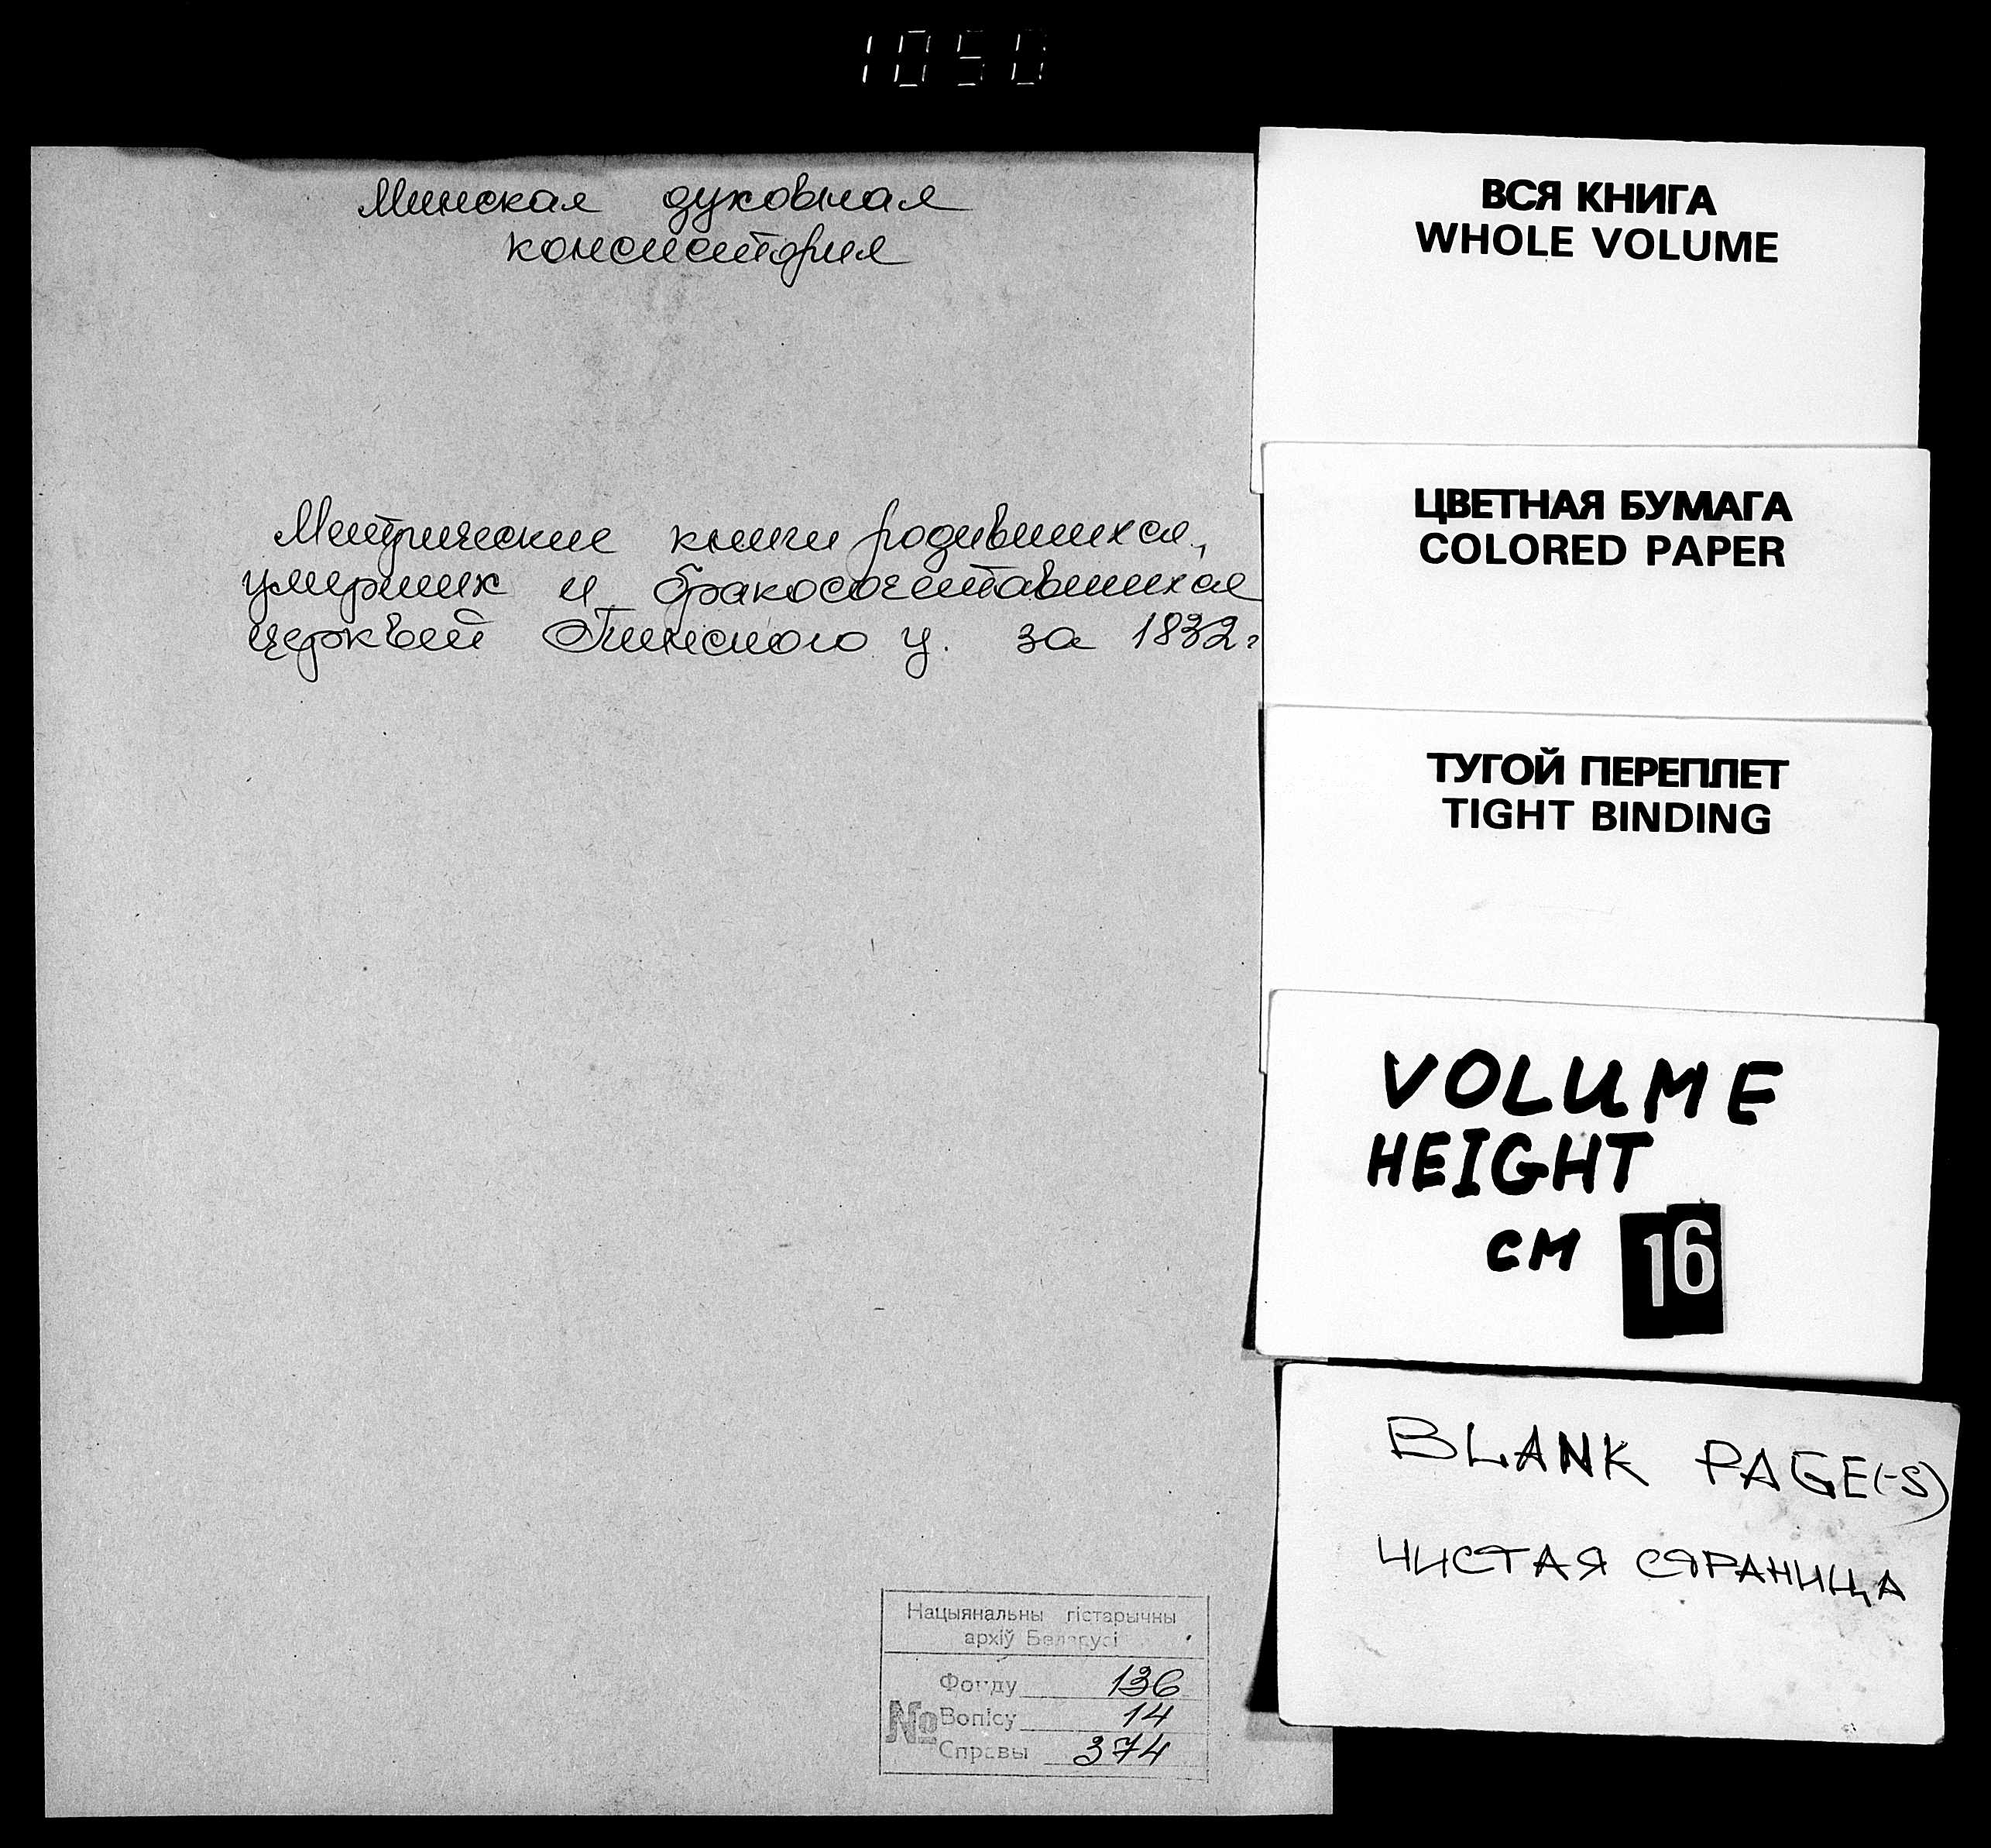 1050
Минская духовная
консистория
Метрические книги родившихся,
умерших и бракосочетавшихся
церквей Пинского у. за 1832г
Нацыянальны гістарычны
архіў Беларусі
№
Фонду 136
Вопісу 14
Справы 374
ВСЯ КНИГА
WHOLE VOLUME
ЦВЕТНАЯ БУМАГА
COLORED PAPER
ТУГОЙ ПЕРЕПЛЕТ
TIGHT BINDING
VOLUME
HEIGHT
СМ 16
BLANK PAGE(-S)
ЧИСТАЯ СТРАНИЦА